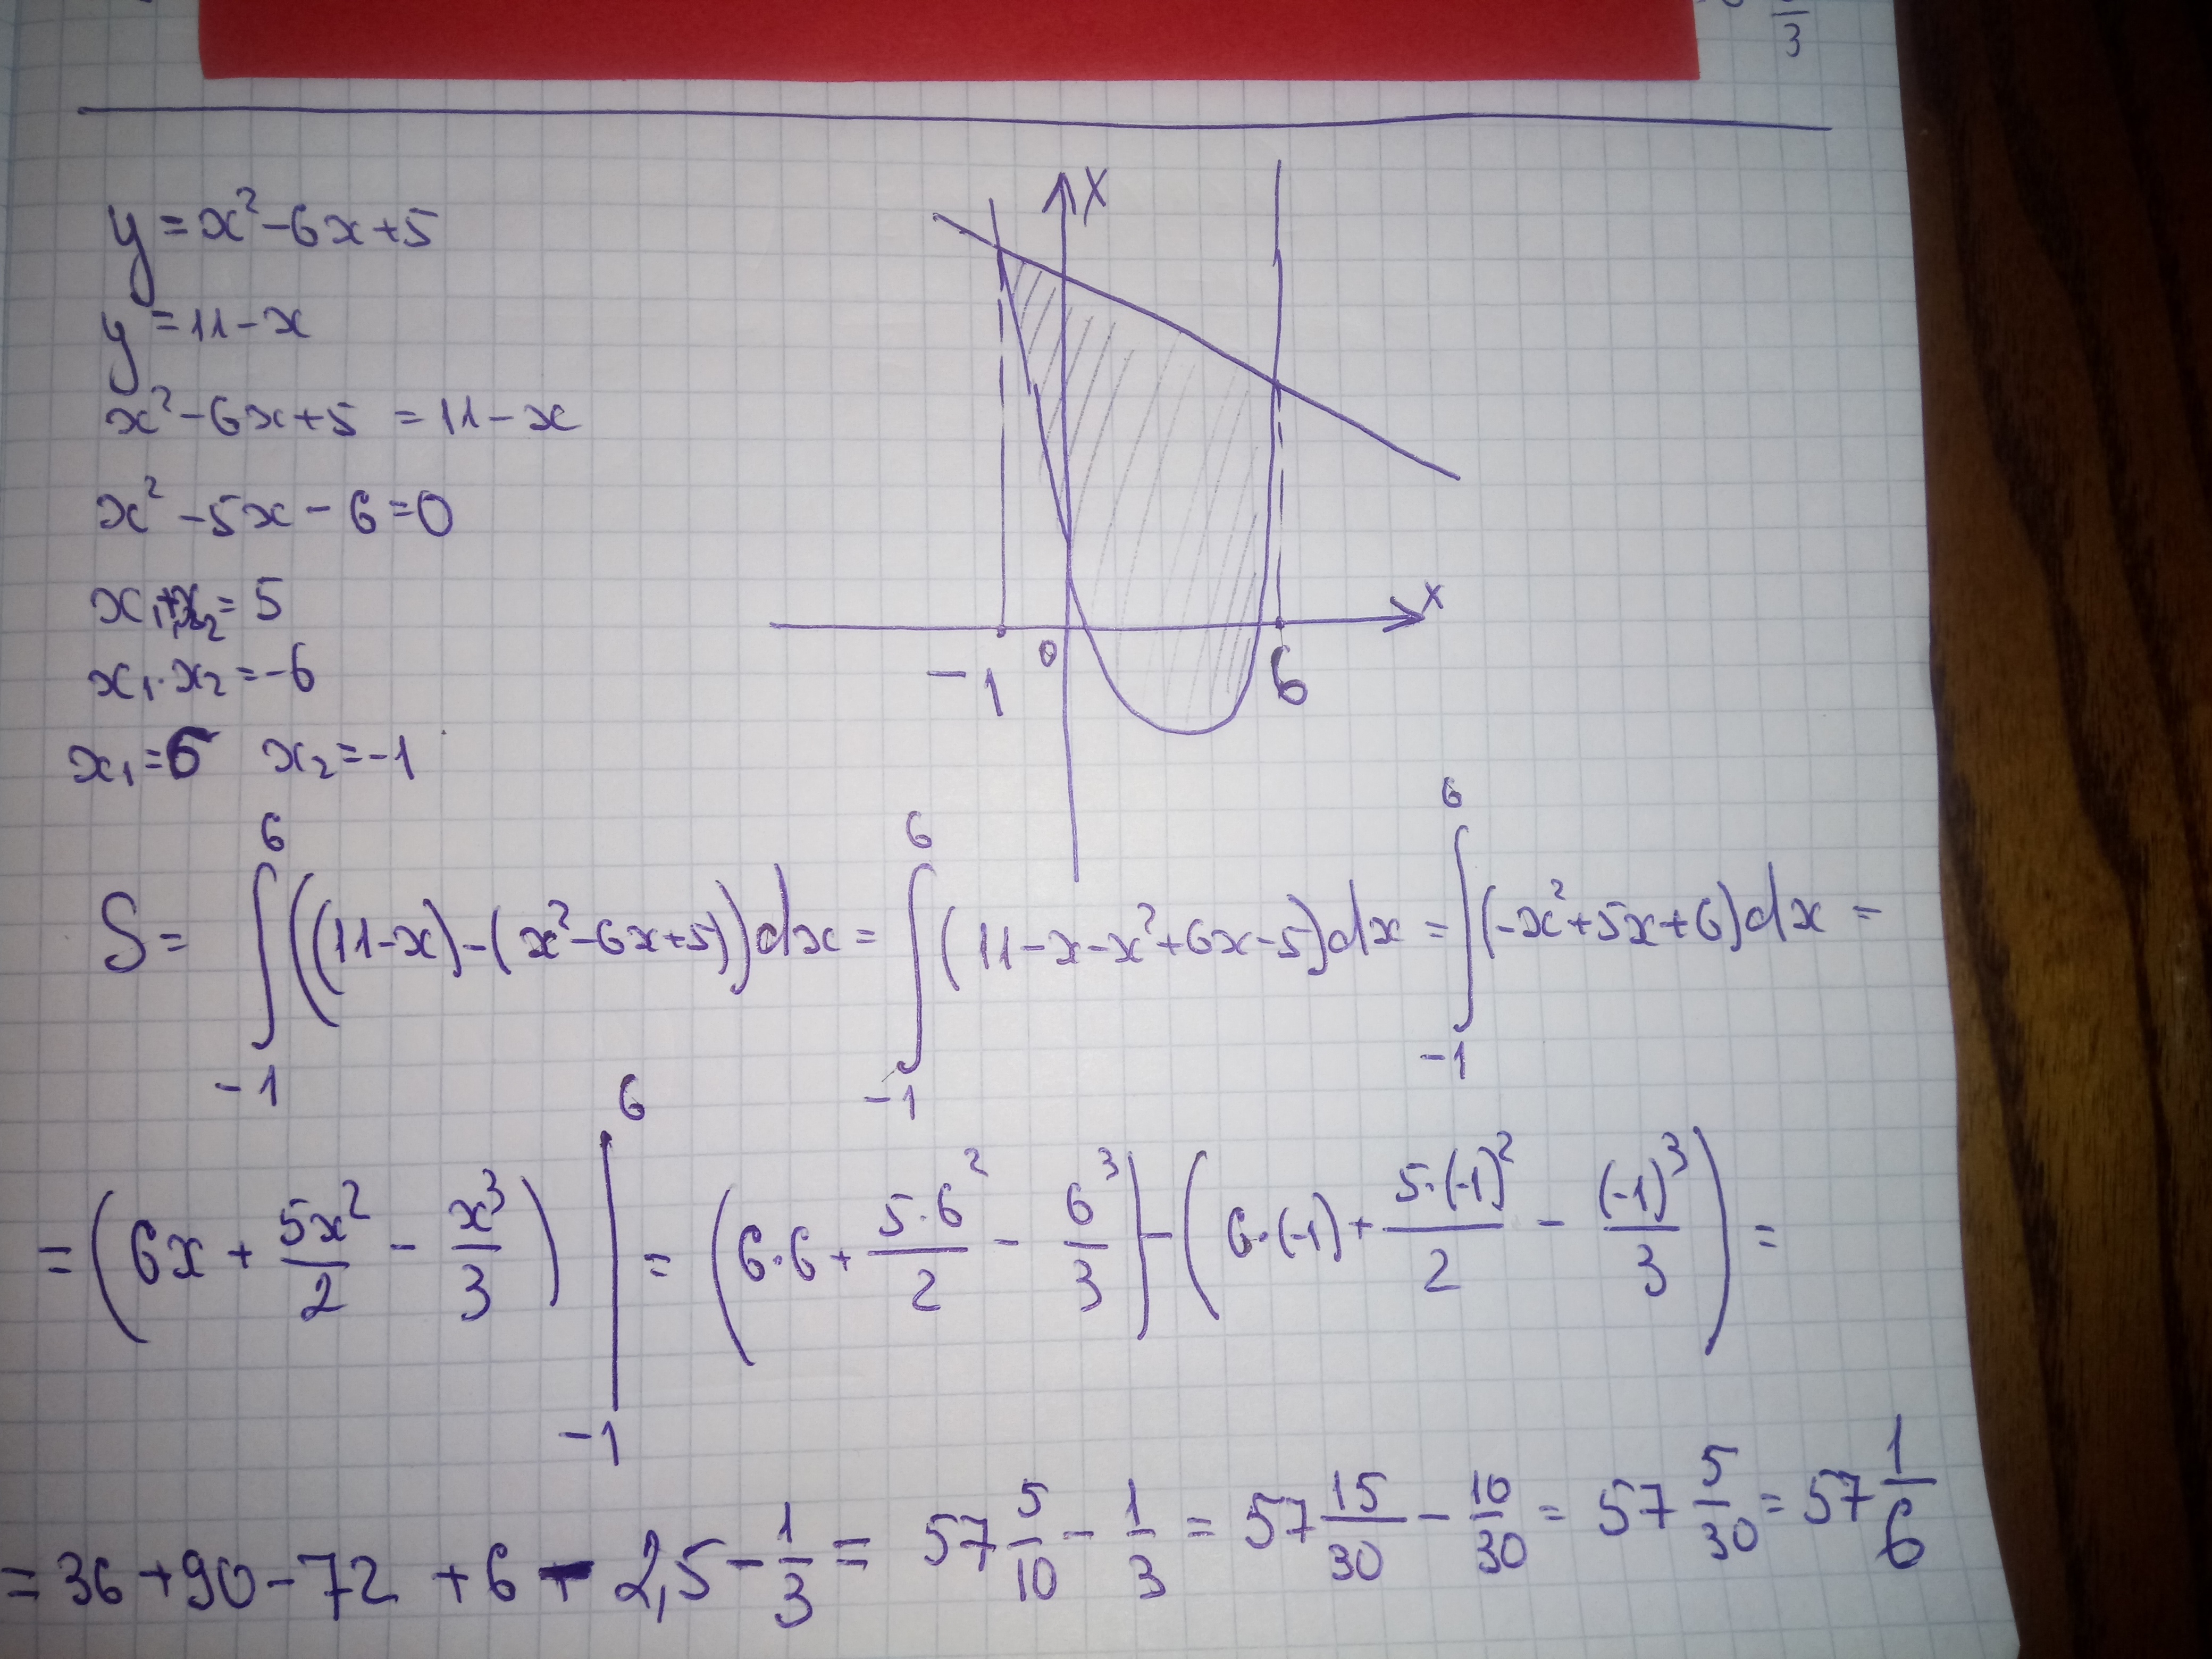 3
y = x² - 6x + 5
y = 11 - x
x² - 6x + 5 = 11 - x
x² - 5x - 6 = 0
x₁ + x₂ = 5
x₁ · x₂ = -6
x₁ = 6 x₂ = -1
X
x
-1 0 6
S = ∫₋₁⁶ ((11 - x) - (x² - 6x + 5)) dx = ∫₋₁⁶ (11 - x - x² + 6x - 5) dx = ∫₋₁⁶ (-x² + 5x + 6) dx =
= (6x + 5x²/2 - x³/3) |₋₁⁶ = (6·6 + 5·6²/2 - 6³/3) - (6·(-1) + 5·(-1)²/2 - (-1)³/3) =
= 36 + 90 - 72 + 6 - 2,5 - 1/3 = 57 5/10 - 1/3 = 57 15/30 - 10/30 = 57 5/30 = 57 1/6